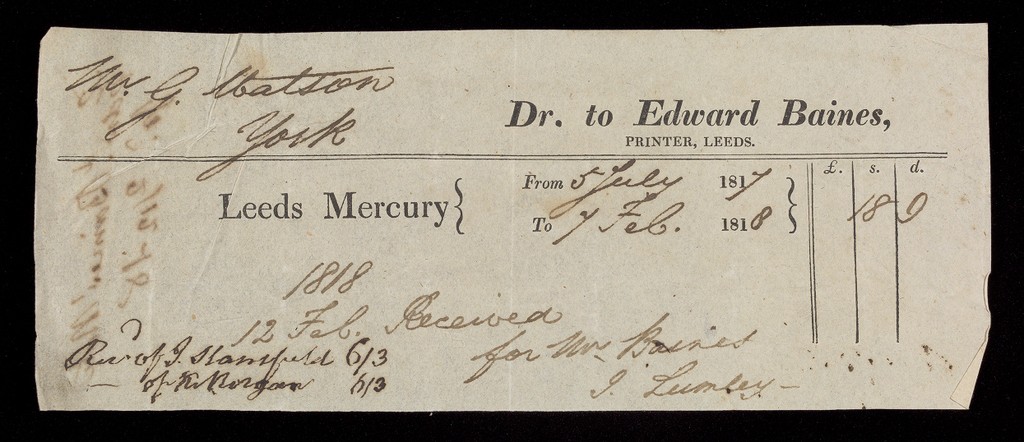 Mr. G. Watson
York
Dr. to Edward Baines,
PRINTER, LEEDS.
£. s. d.
Leeds Mercury { From 5 July 1817 }
To 7 Feb. 1818 18 9
1818
12 Feb. Received
for Mr. Baines
J. Lumley —
Recd of J. Stansfeld 6/3
— of K Morgan 6/3